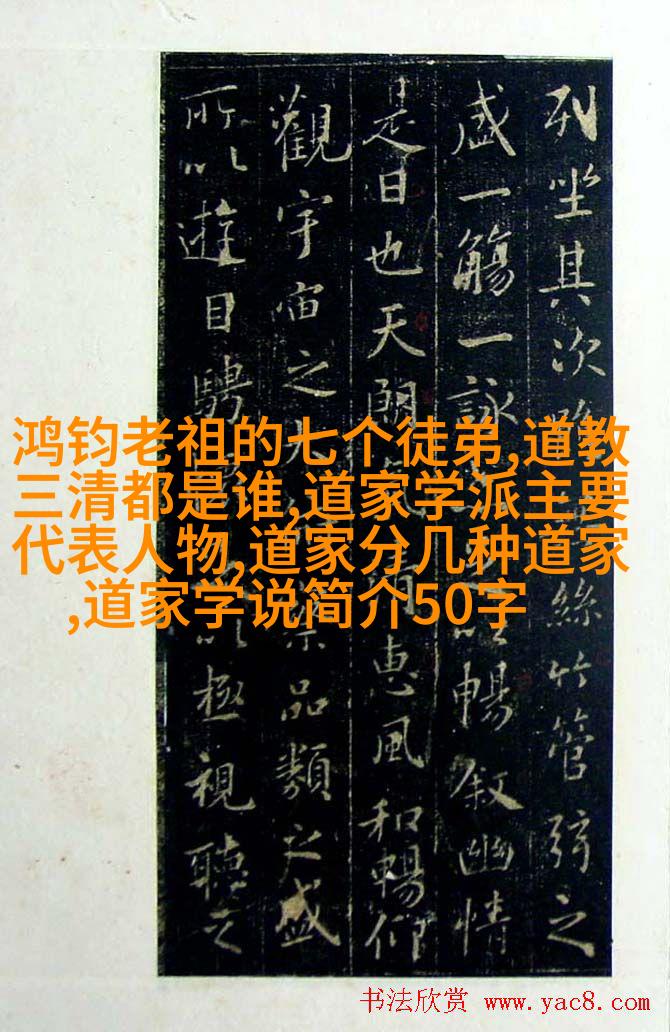 列坐其次絲竹管弦之
盛一觴一詠暢叙幽情
是日也天朗惠風和暢仰
觀宇宙之品類之盛
所以遊目騁以極視聽之
鸿钧老祖的七个徒弟,道教
三清都是谁,道家学派主要
代表人物,道家分几种道家
,道家学说简介50字
书法欣赏 www.yac8.com